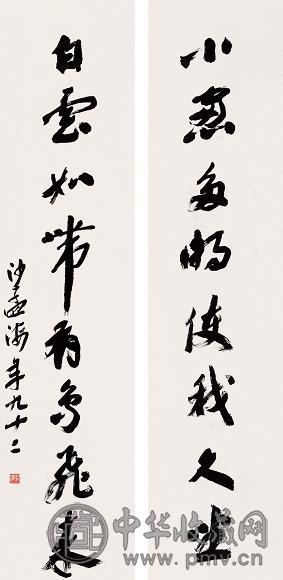 小窗多明使我久坐
白云如带有鸟飞来
沙孟海年九十二
中华收藏网
www.pmv.cn